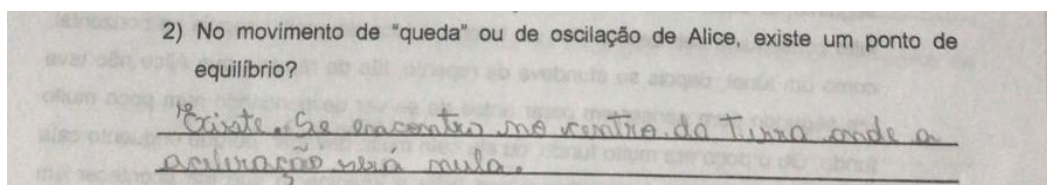 2) No movimento de "queda" ou de oscilação de Alice, existe um ponto de
equilíbrio?
Existe. Se encontra no centro da Terra onde a
aceleração será nula.